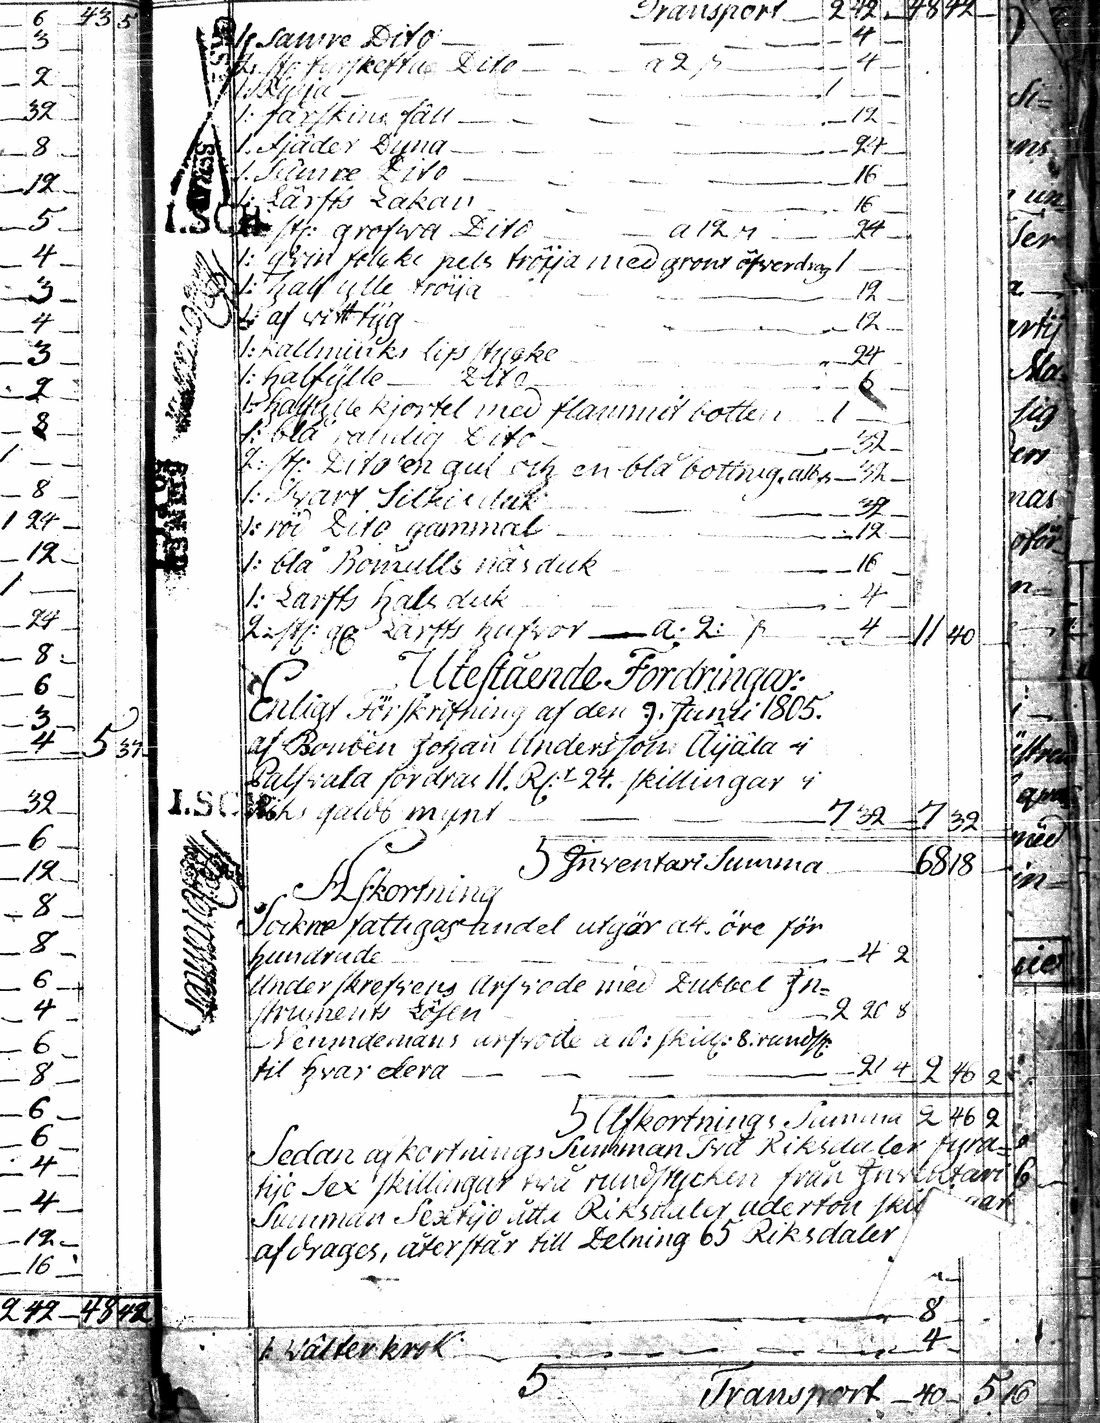 Transport 2 42 48 42
1: Sämre Dito 4
2: st: Dito a 2 4
1: 1
1: fårskins fäll 12
1: fjäder Dyna 24
1: Sämre Dito 16
1: Lärfts Lakan 16
st: grofwa Dito a 12 24
1: pels tröÿja med grönt öfverdrag 1
1: half ÿlle tröÿa 12
1: af witt tÿg 12
1: kallminks lifstycke 24
1: halfÿlle Dito 6
1: halfÿlle kjortel med flammit botten 1
1: blå randig Dito 32
2: st: Dito en gul och en blå bottnig 32
1: Svart Silkesduk 32
1: röd Dito gammal 12
1: blå Bomulls näsduk 16
1: Lärfts halsduk 4
2: st: Lärfts hufvor a: 2: 4 11 40
Utestående Fordringar:
Enligt Förskrifning af den 9. Junii 1805.
af Bonden Johan Andersson Äijälä i
fordras 11. R:r 24. skillingar i
Riks galds mynt 7 32 7 32
S Inventarii Summa 68 18
Afkortning
Sockne fattigas andel utgör a 4. öre för
hundrade 4 2
Underskrefvens Arfvode med Dubbel In=
struments Lösen 2 20 8
Nämndemans arfvode a 10: skill: 8. rundst:
til hvardera 21 4 2 46 2
S Afkortnings Summa 2 46 2
Sedan afkortnings Summan Två Riksdaler fyra=
tijo Sex skillingar två rundstycken från Inventarii
Summan Sextijo åtta Riksdaler aderton
afdrages, återstår till Delning 65 Riksdaler
8
1: Wälter krok 4
S
Transport 40 5 16
I.SCH
I.SCH
6 43 5
3
2
32
8
12
5
4
3
4
3
2
8
1
8
1 24
12
1
24
8
6
3
4 5 37
32
6
12
8
8
6
4
6
8
6
6
4
4
12
16
2 42 48 42